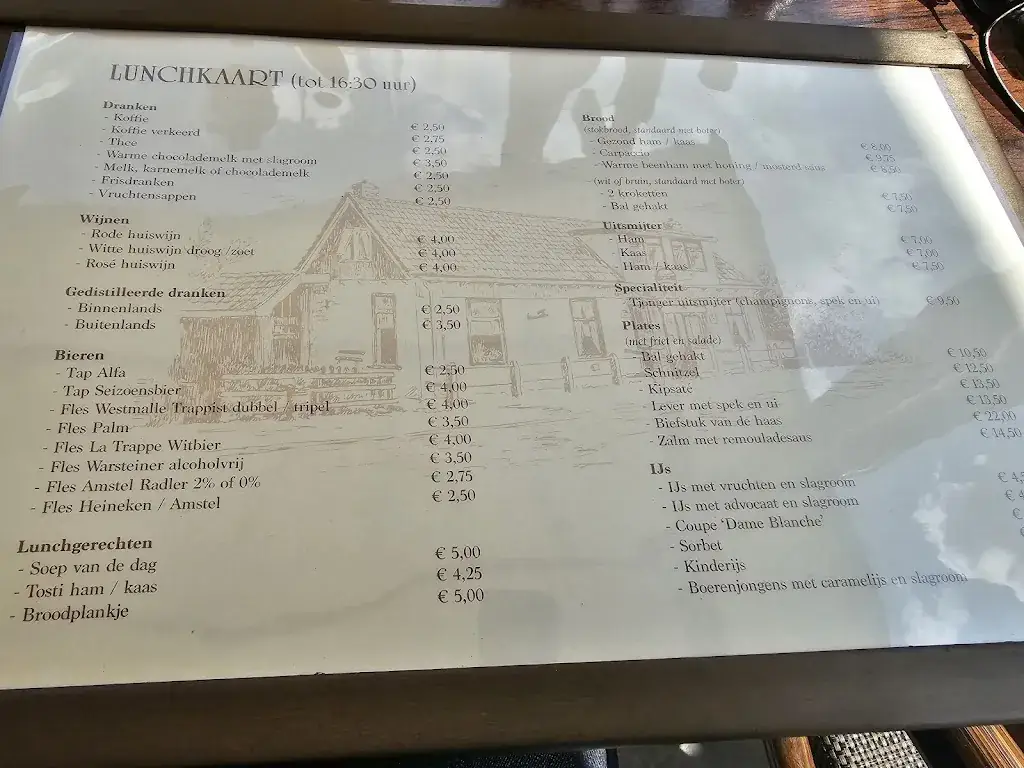 LUNCHKAART (tot 16:30 uur)
Dranken
- Koffie € 2,50
- Koffie verkeerd € 2,75
- Thee € 2,50
- Warme chocolademelk met slagroom € 3,50
- Melk, karnemelk of chocolademelk € 2,50
- Frisdranken € 2,50
- Vruchtensappen € 2,50
Wijnen
- Rode huiswijn € 4,00
- Witte huiswijn droog /zoet € 4,00
- Rosé huiswijn € 4,00
Gedistilleerde dranken
- Binnenlands € 2,50
- Buitenlands € 3,50
Bieren
- Tap Alfa € 2,50
- Tap Seizoensbier € 4,00
- Fles Westmalle Trappist dubbel / tripel € 4,00
- Fles Palm € 3,50
- Fles La Trappe Witbier € 4,00
- Fles Warsteiner alcoholvrij € 3,50
- Fles Amstel Radler 2% of 0% € 2,75
- Fles Heineken / Amstel € 2,50
Lunchgerechten
- Soep van de dag € 5,00
- Tosti ham / kaas € 4,25
- Broodplankje € 5,00
Brood
(stokbrood, standaard met boter)
- Gezond ham / kaas € 8,00
- Carpaccio € 9,75
- Warme beenham met honing / mosterd saus € 8,50
(wit of bruin, standaard met boter)
- 2 kroketten € 7,50
- Bal gehakt € 7,50
Uitsmijter
- Ham € 7,00
- Kaas € 7,00
- Ham / kaas € 7,50
Specialiteit
- Tjonger uitsmijter (champignons, spek en ui) € 9,50
Plates
(met friet en salade)
- Bal gehakt € 10,50
- Schnitzel € 12,50
- Kipsaté € 13,50
- Lever met spek en ui € 13,50
- Biefstuk van de haas € 22,00
- Zalm met remouladesaus € 14,50
IJs
- IJs met vruchten en slagroom €
- IJs met advocaat en slagroom €
- Coupe 'Dame Blanche' €
- Sorbet
- Kinderijs
- Boerenjongens met caramelijs en slagroom